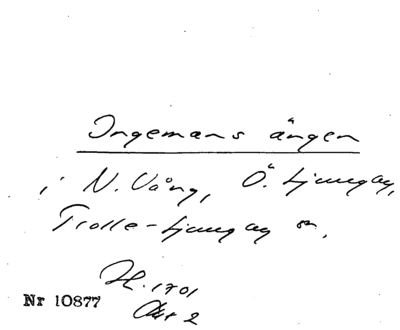 Ingemans ängen
i N. Vång, Ö. Ljungby,
Trolle-Ljungby sn,
H. 1701
Akt 2
Nr 10877